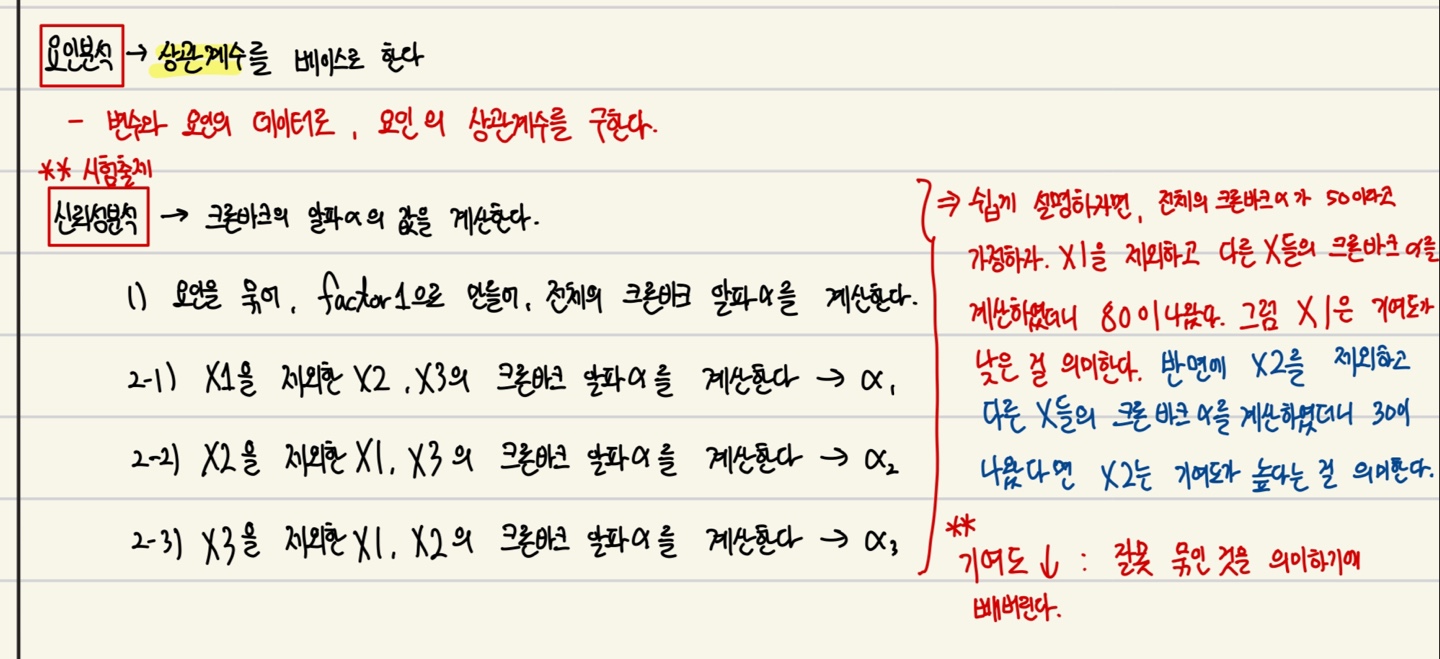 요인분석 → 상관계수를 베이스로 한다
- 변수와 요인의 데이터로, 요인의 상관계수를 구한다.
** 시험출제
신뢰성분석 → 크론바크의 알파α의 값을 계산한다.
1) 요인을 묶어, factor1으로 만들어, 전체의 크론바크 알파α를 계산한다.
2-1) X1을 제외한 X2, X3의 크론바크 알파α를 계산한다 → α₁
2-2) X2을 제외한 X1, X3의 크론바크 알파α를 계산한다 → α₂
2-3) X3을 제외한 X1, X2의 크론바크 알파α를 계산한다 → α₃
⇒ 쉽게 설명하자면, 전체의 크론바크α가 50이라고
가정하자. X1을 제외하고 다른 X들의 크론바크 α를
계산하였더니 80이 나왔다. 그럼 X1은 기여도가
낮은 걸 의미한다. 반면에 X2를 제외하고
다른 X들의 크론바크 α를 계산하였더니 30이
나왔다면 X2는 기여도가 높다는 걸 의미한다.
**
기여도↓ : 잘못 묶인 것을 의미하기에
빼버린다.